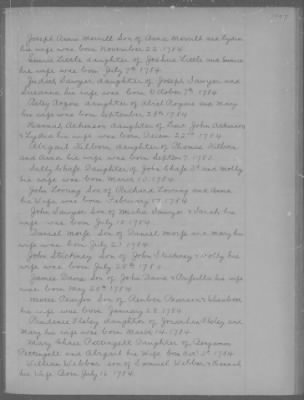 Joseph Annis Morrill Son of Annis Morrill and Lydia
his wife was born November 22 1784.
Eunice Little daughter of Joshua Little and Eunice
his wife was born July 7th 1784.
Judith Sawyer daughter of Joseph Sawyer and
Susanna his wife was born October 7th 1784.
Polly Rogers daughter of Abiel Rogers and Mary
his wife was born September 28th 1784.
Hannah Atkinson daughter of Lieut John Atkinson
& Lydia his wife was born Decem 22nd 1784.
Abigail Kilborn daughter of Thomas Kilborn
and Anna his wife was born Septem 7. 1785.
Sally Chafe Daughter of John Chafe Jr and Molly
his wife was born March 12. 1784.
John Loring Son of Richard Loring and Anna
his Wife was born February 17. 1784
John Sawyer Son of Micha Sawyer & Sarah his
wife was born July 10. 1784
Daniel Morss Son of Daniel Morss and Mary his
wife was born July 21. 1784.
John Stickney Son of John Stickney & Polly his
wife was born July 20th 1784.
James Dane Son of John Dane & his wife
was born May 20th 1784.
Moses Pearson Son of Reuben Pearson &
his wife was born January 28. 1784
Prudence Plsley daughter of Jonathan Plsley and
his wife was born March 14. 1784
Mary Chase Pettingell Daughter of Benjamin
Pettingell and Abigail his Wife born Octr 2d 1784.
William Webber son of Samuel Webber & Hannah
his Wife Born July 16 1784.